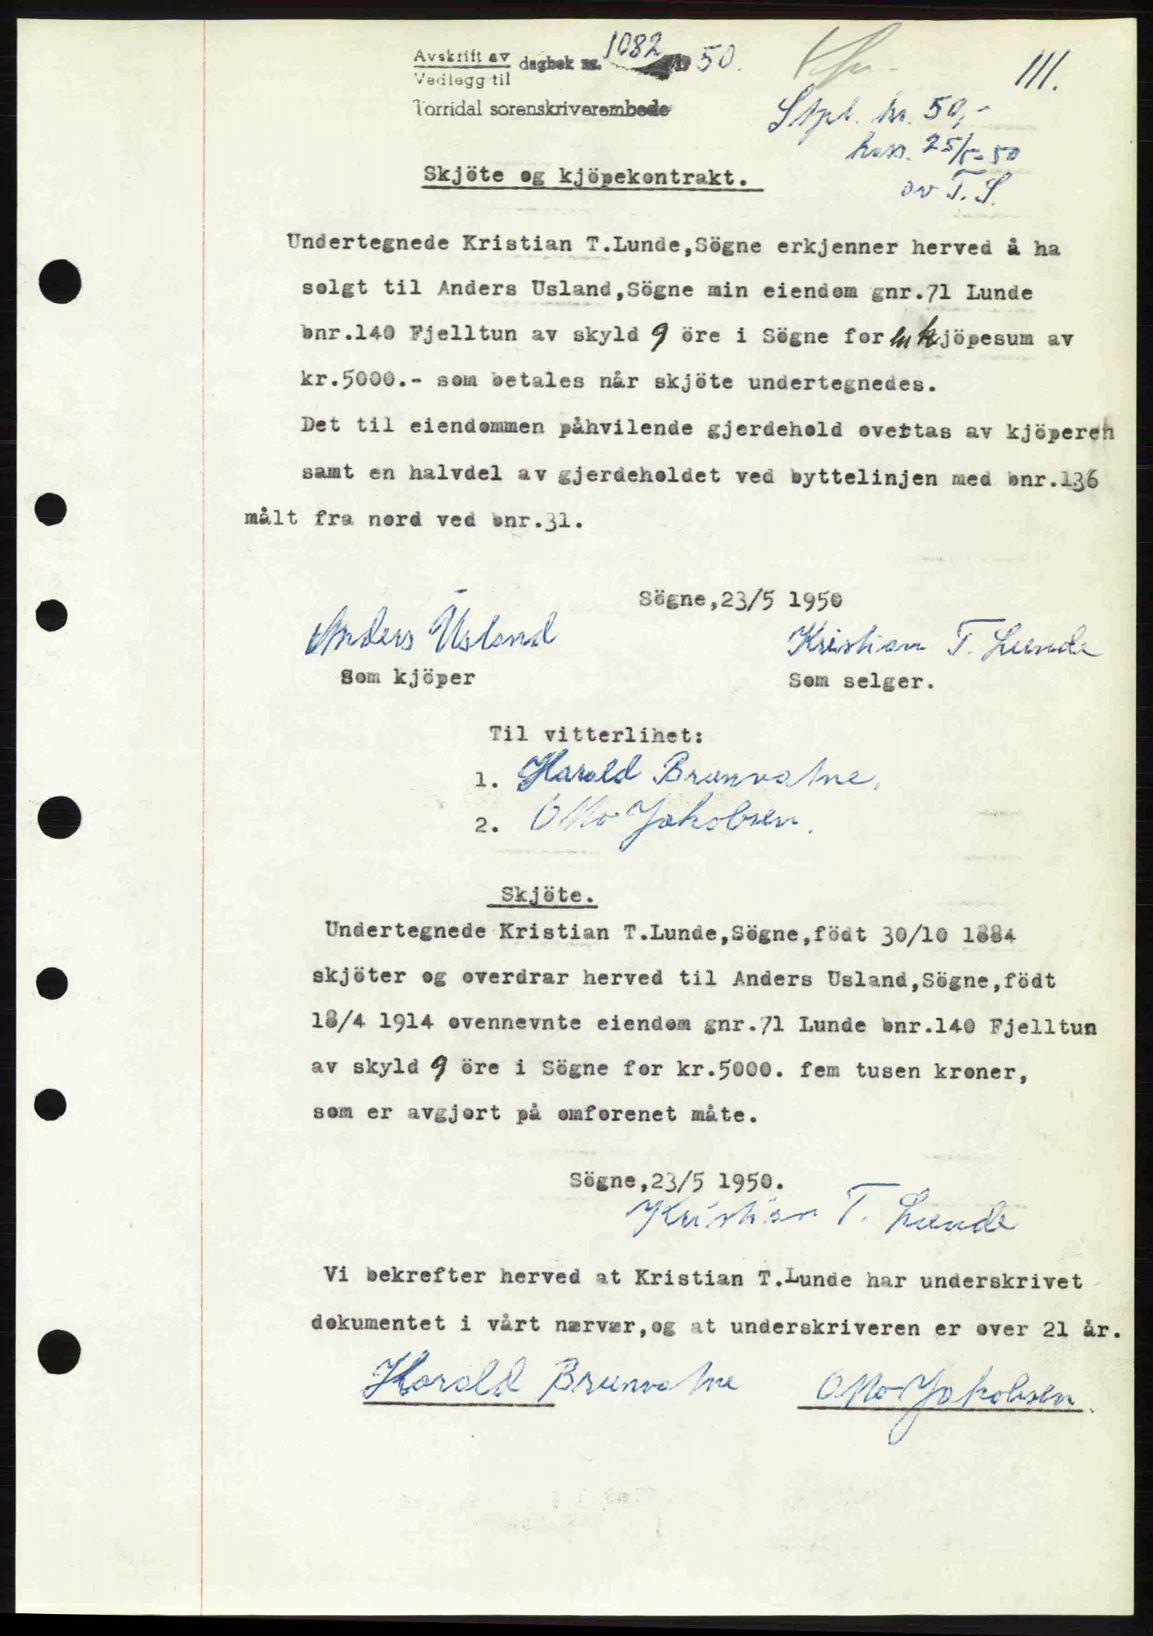 Avskrift av
Vedlegg til
dagbok nr. 1082 50.
Torridal sorenskriverembede
111.
Stpl. kr. 50,-
kass. 25/5-50
av T.S.
Skjöte og kjöpekontrakt.
Undertegnede Kristian T.Lunde,Sögne erkjenner herved å ha
solgt til Anders Usland,Sögne min eiendom gnr.71 Lunde
bnr.140 Fjelltun av skyld 9 öre i Sögne for en kjöpesum av
kr.5000.- som betales når skjöte undertegnedes.
Det til eiendommen påhvilende gjerdehold overtas av kjöperen
samt en halvdel av gjerdeholdet ved byttelinjen med bnr.136
målt fra nord ved bnr.31.
Sögne,23/5 1950
Anders Usland
Kristian T. Lunde
Som kjöper
Som selger.
Til vitterlihet:
1. Harald Brunvatne.
2. Otto Jakobsen.
Skjöte.
Undertegnede Kristian T.Lunde,Sögne,födt 30/10 1884
skjöter og overdrar herved til Anders Usland,Sögne,födt
18/4 1914 ovennevnte eiendom gnr.71 Lunde bnr.140 Fjelltun
av skyld 9 öre i Sögne for kr.5000. fem tusen kroner,
som er avgjort på omforenet måte.
Sögne,23/5 1950.
Kristian T. Lunde
Vi bekrefter herved at Kristian T.Lunde har underskrivet
dokumentet i vårt nærvær,og at underskriveren er over 21 år.
Harald Brunvatne
Otto Jakobsen.